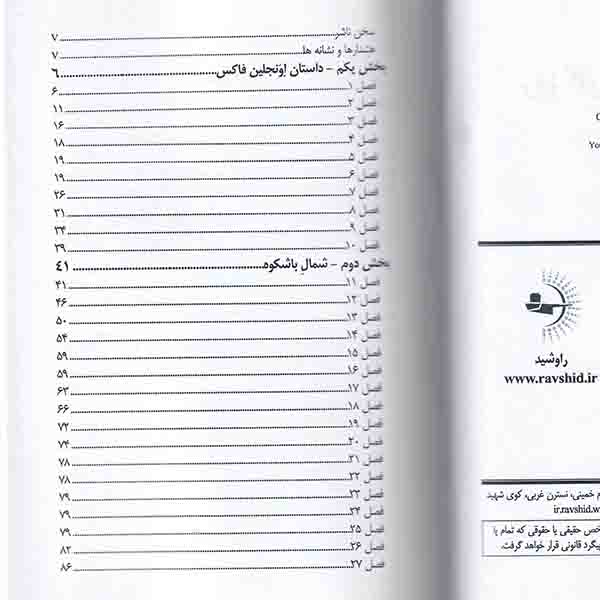 سخن ناشر ۷
هشدارها و نشانه ها ۷
بخش یکم - داستان اوَنجلین فاکس ۶
فصل ۱ ۶
فصل ۲ ۱۱
فصل ۳ ۱۶
فصل ۴ ۱۸
فصل ۵ ۱۹
فصل ۶ ۱۹
فصل ۷ ۲۶
فصل ۸ ۳۱
فصل ۹ ۳۴
فصل ۱۰ ۳۹
بخش دوم - شمالِ باشکوه ۴۱
فصل ۱۱ ۴۱
فصل ۱۲ ۴۶
فصل ۱۳ ۵۰
فصل ۱۴ ۵۴
فصل ۱۵ ۵۹
فصل ۱۶ ۵۹
فصل ۱۷ ۶۳
فصل ۱۸ ۶۶
فصل ۱۹ ۷۲
فصل ۲۰ ۷۴
فصل ۲۱ ۷۸
فصل ۲۲ ۷۸
فصل ۲۳ ۷۹
فصل ۲۴ ۷۹
فصل ۲۵ ۷۹
فصل ۲۶ ۸۲
فصل ۲۷ ۸۶
راوشید
www.ravshid.ir
خمینی، نسترن غربی، کوی شهید
ir.ravshid.w
حقیقی یا حقوقی که تمام یا
پیگرد قانونی قرار خواهد گرفت.